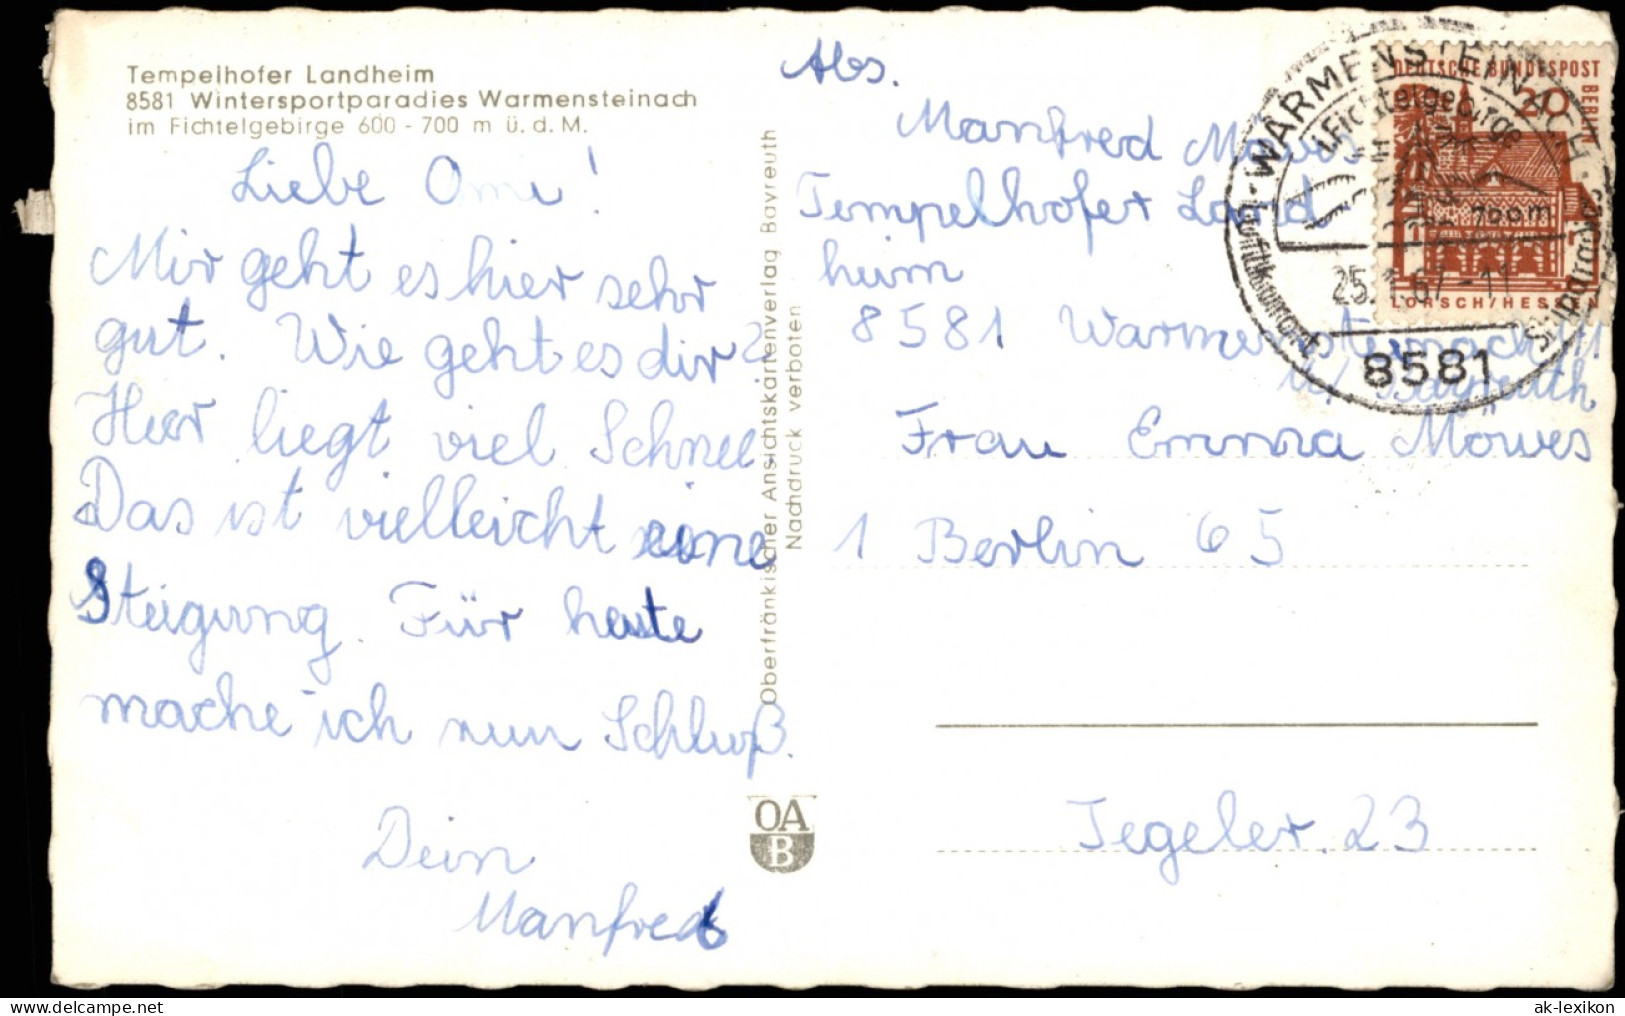 Tempelhofer Landheim
8581 Wintersportparadies Warmensteinach
im Fichtelgebirge 600 - 700 m ü. d. M.
Liebe Omi!
Mir geht es hier sehr
gut. Wie geht es dir?
Hier liegt viel Schnee.
Das ist vielleicht eine
Steigung. Für heute
mache ich nun Schluß.
Dein
Manfred
Oberfränkischer Ansichtskartenverlag Bayreuth
Nachdruck verboten
OA
B
Abs.
Manfred Möwes
Tempelhofer Land
heim
8581 Warmensteinach
Bayreuth
Frau Emma Möwes
1 Berlin 65
Tegeler. 23
WARMENSTEINACH
i. Fichtelgebirge
700 m
Luftkurort
Skiparadies
25.1.67-11
8581
DEUTSCHE BUNDESPOST
BERLIN
20
LORSCH/HESSEN
ak-lexikon